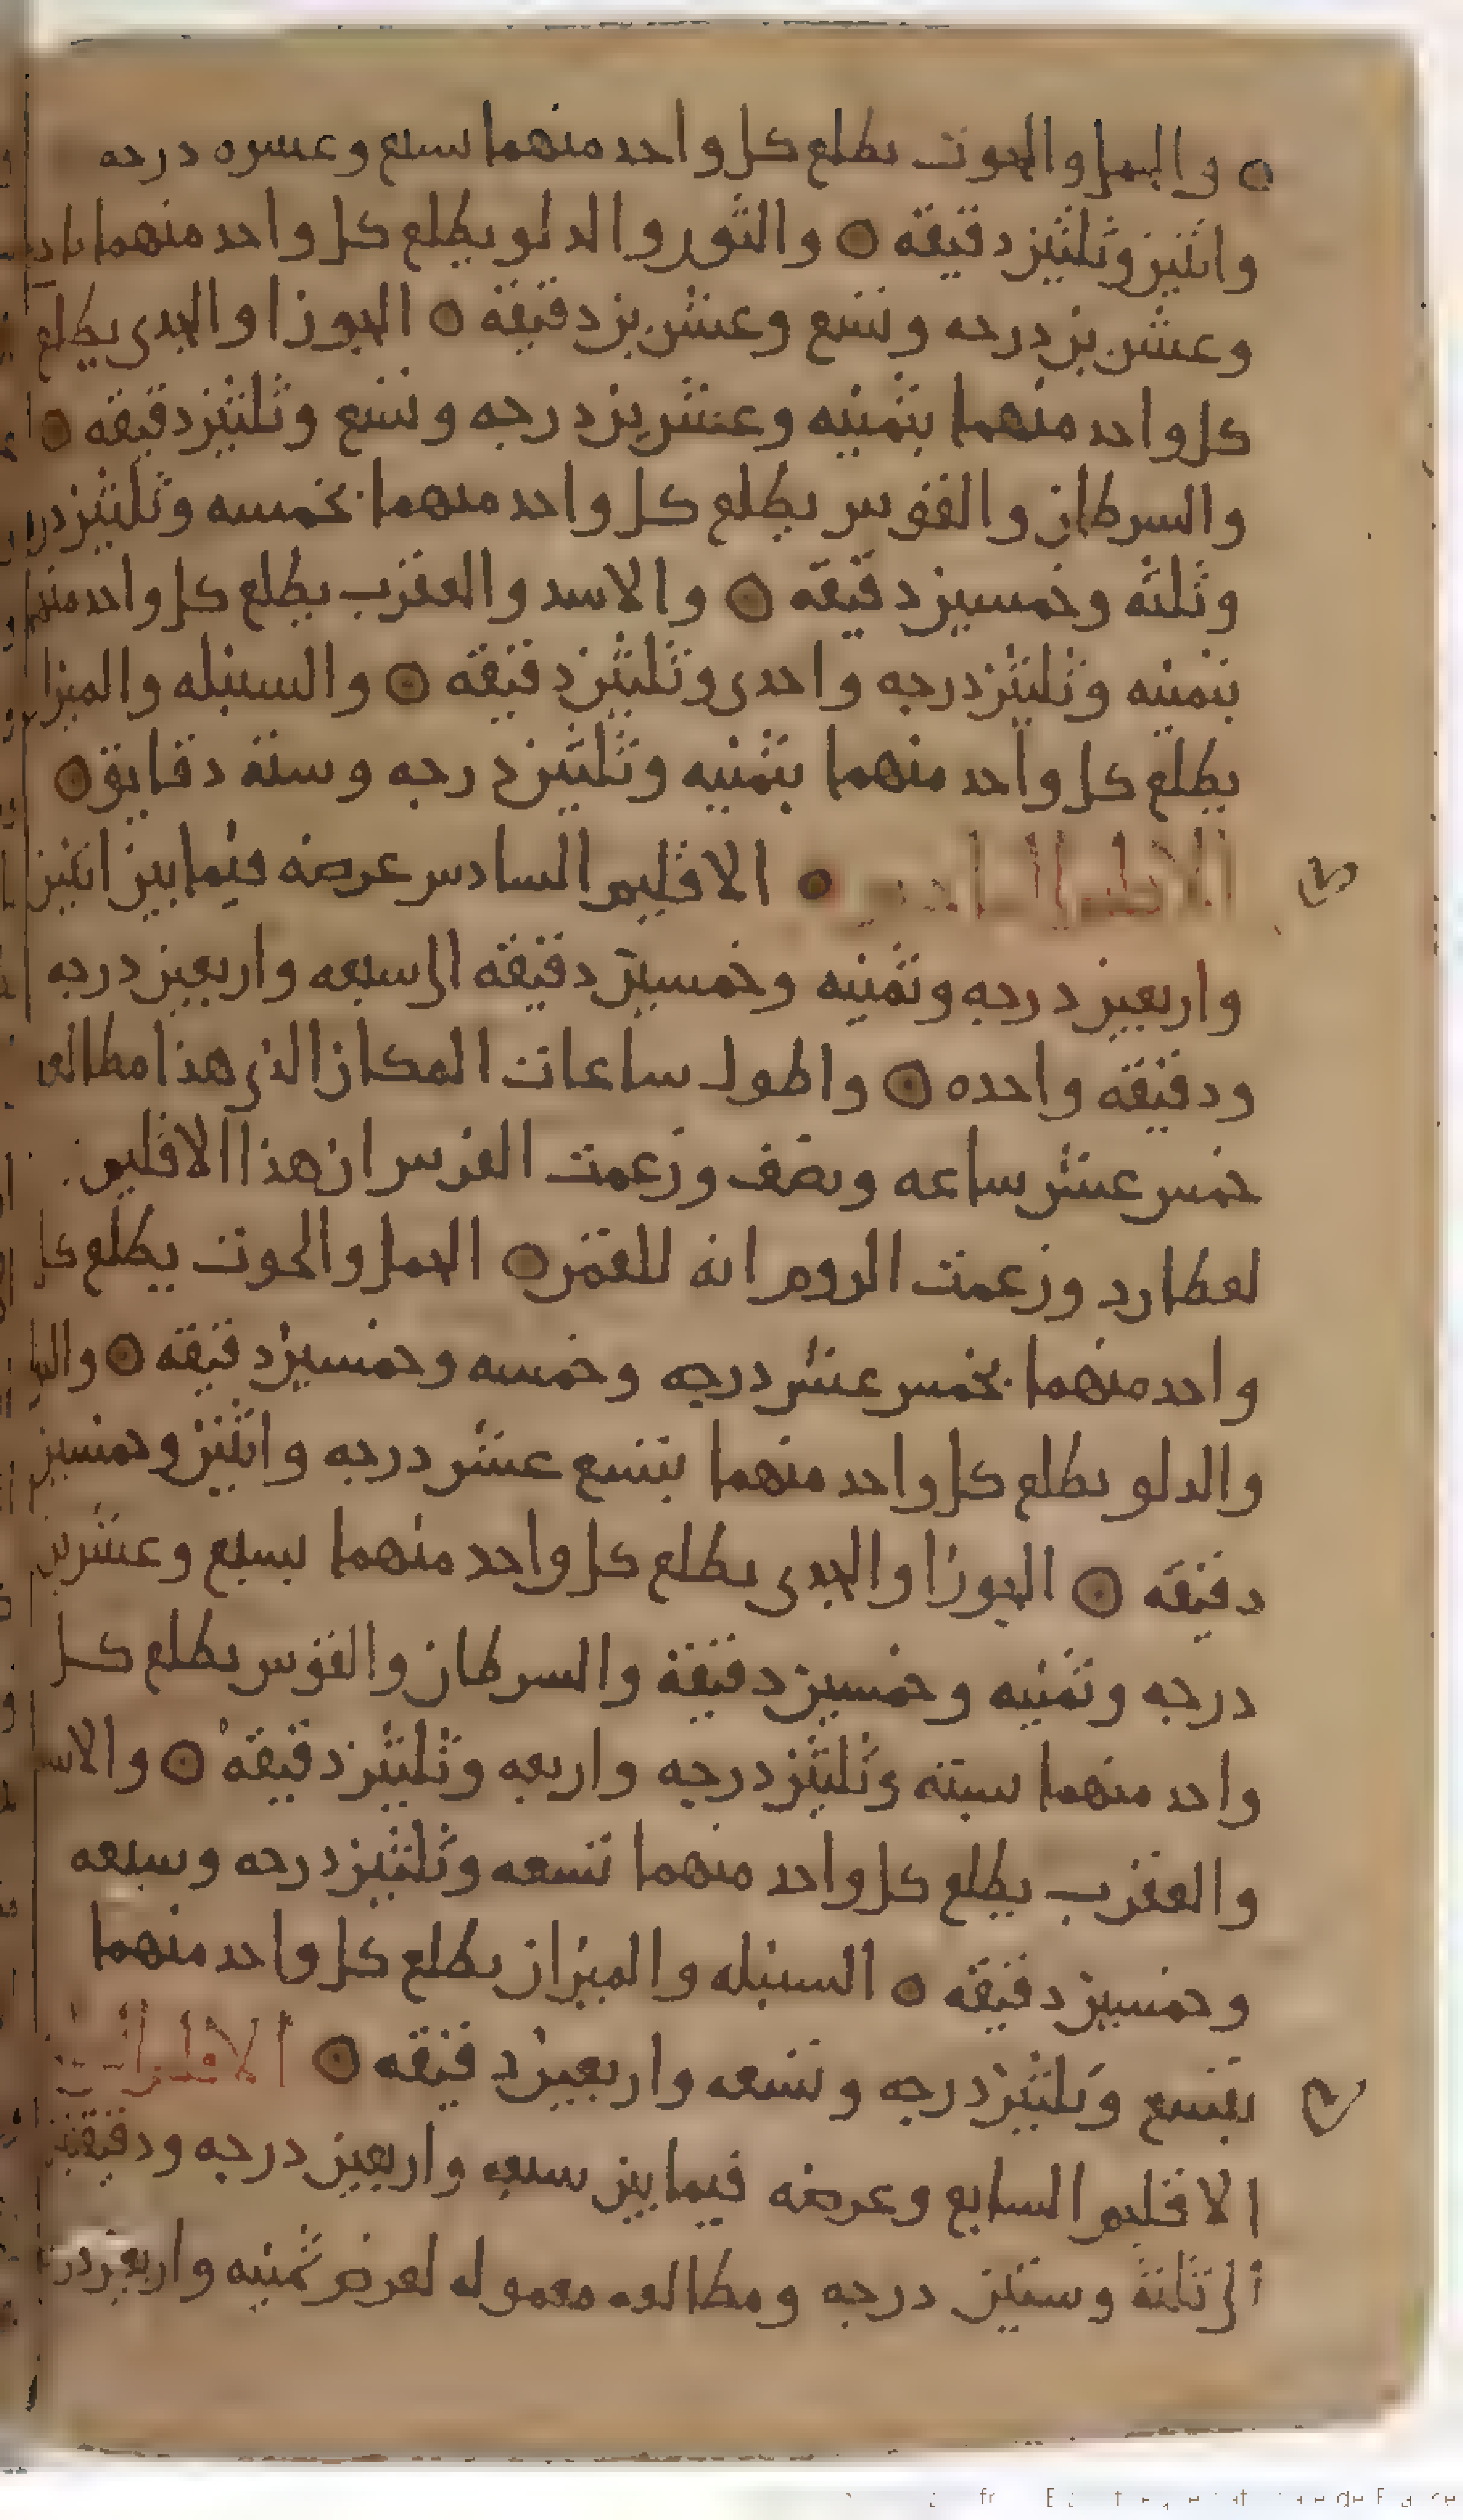 والحمل والحوت يطلع كل واحد منهما سبع وعسره درجه
واثنين وثلثين دقيقة والثور والدلو يطلع كل واحد منهما
وعشرين درجه وتسع وعشرين دقيقة الجوزا والجدى يطلع
كل واحد منهما بثمنيه وعشرين درجه وتسع وثلثين دقيقه
والسرطان والقوس يطلع كل واحد منهما بخمسه وثلثين
وثلثه وخمسين دقيقه والاسد والعقرب يطلع كل واحد منهما
بثمنيه وثلثين درجه واحدى وثلثين دقيقة والسنبله والميزان
يطلع كل واحد منهما بثمنيه وثلثين درجه وستة دقايق
الاقليم السادس الاقليم السادس عرضه فيما بين اثنين
واربعين درجه وثمنيه وخمسين دقيقة الى سبعه واربعين درجه
ودقيقه واحده واطول ساعات المكان الذى هذا مطالعه
خمس عشر ساعه ونصف وزعمت الفرس ان هذا الاقليم
لعطارد وزعمت الروم انه للقمر الحمل والحوت يطلع كل
واحد منهما بخمس عشر درجه وخمسه وخمسين دقيقه
والدلو يطلع كل واحد منهما بتسع عشر درجه واثنين وخمسين
دقيقه الجوزا والجدى يطلع كل واحد منهما بسبع وعشرين
درجه وثمنيه وخمسين دقيقة والسرطان والقوس يطلع كل
واحد منهما ستة وثلثين درجه واربعه وثلثين دقيقة والاسد
والعقرب يطلع كل واحد منهما تسعه وثلثين درجه وسبعه
وخمسين دقيقه السنبله والميزان يطلع كل واحد منهما
بتسع وثلثين درجه وتسعه واربعين دقيقه الاقليم
الاقليم السابع وعرضه فيما بين سبعه واربعين درجه ودقيقتين
الى ثلثة وستين درجه ومطالعه معموله لعرض ثمنيه واربعين